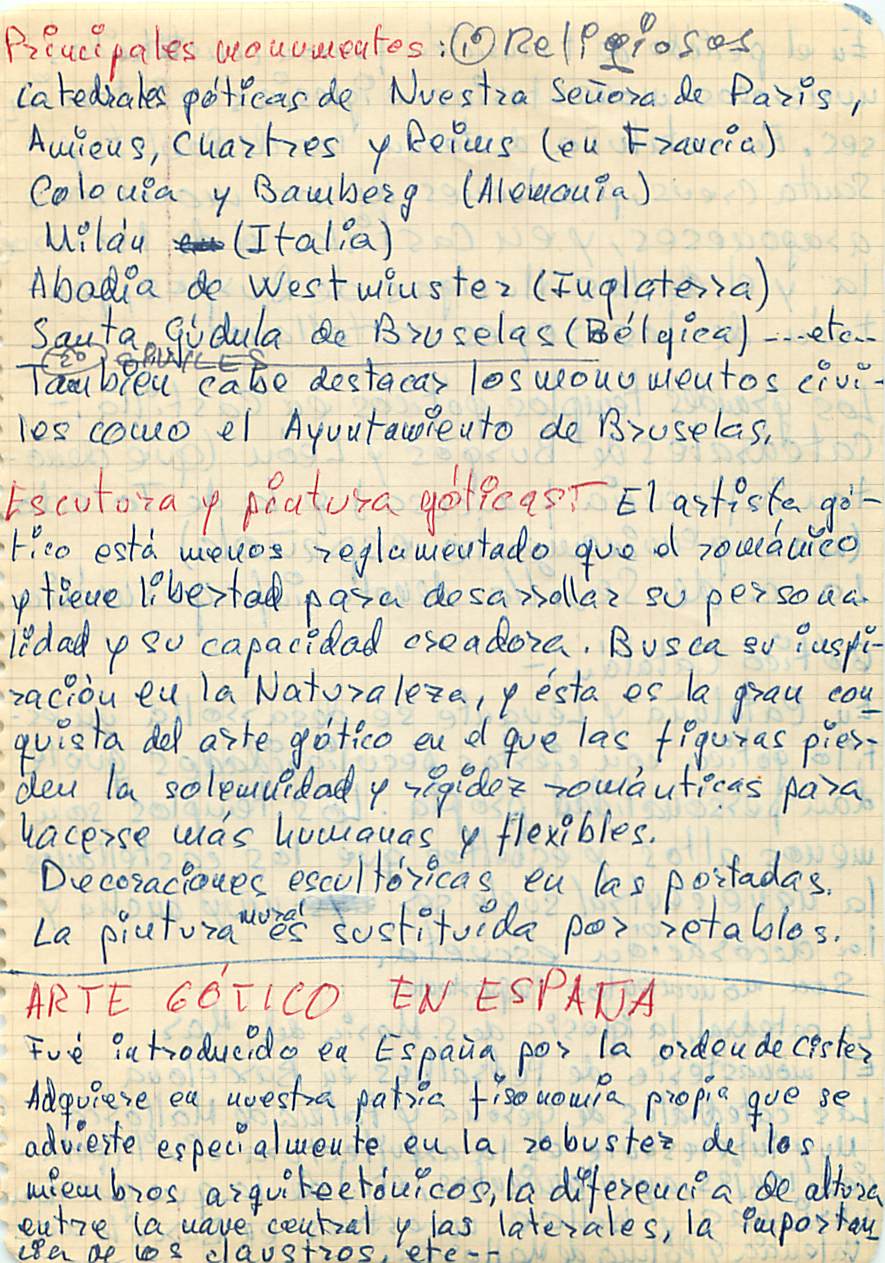 Principales monumentos: 1º Religiosos
Catedrales góticas de Nuestra Señora de Paris,
Amiens, Chartres y Reims (en Francia)
Colonia y Bamberg (Alemania)
Milán (Italia)
Abadia de Westminster (Inglaterra)
Santa Gúdula de Bruselas (Bélgica) ---etc--
2º CIVILES
También cabe destacar los monumentos civi-
les como el Ayuntamiento de Bruselas.
Escutura y pintura góticas: El artista gó-
tico está menos reglamentado que el románico
y tiene libertad para desarrollar su persona-
lidad y su capacidad creadora. Busca su inspi-
ración en la Naturaleza, y ésta es la gran con
quista del arte gótico en el que las figuras pier-
den la solemnidad y rigidez románticas para
hacerse más humanas y flexibles.
Decoraciones escultóricas en las portadas.
La pintura mural es sustituida por retablos.
ARTE GÓTICO EN ESPAÑA
Fué introducido en España por la orden de cister
Adquiere en nuestra patria fisonomia propia que se
advierte especialmente en la robustez de los
miembros arquitectónicos, la diferencia de altura
entre la nave central y las laterales, la importan
cia de los claustros, etc--